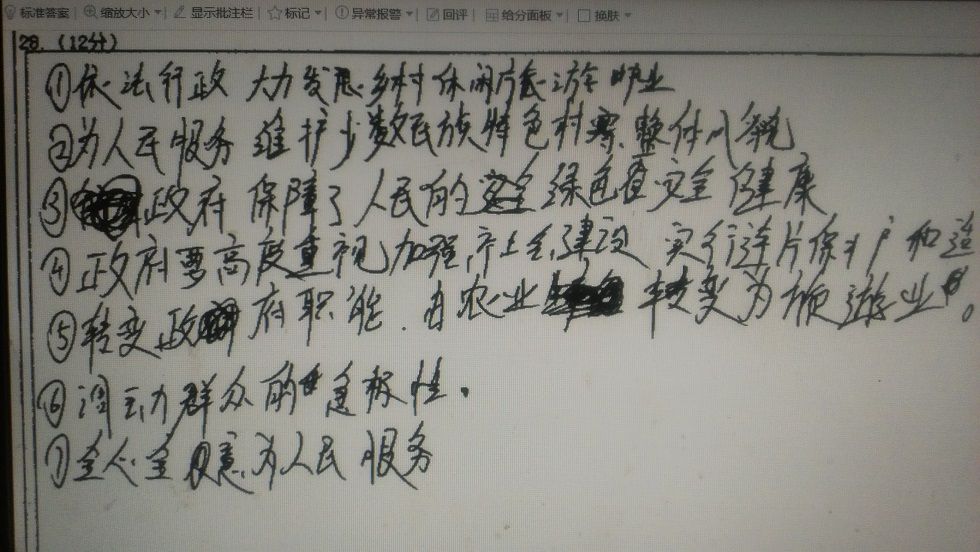 标准答案 缩放大小 显示批注栏 标记 异常报警 回评 给分面板 换肤
28.(12分)
①依法行政 大力发展乡村休闲旅游业
②为人民服务 维护少数民族特色村寨整体风貌
③政府保障了人民的安全 绿色 安全 健康
④政府要高度重视,加强 建设 实行连片保护和
⑤转变政府职能.由农业 转变为 旅游业。
⑥调动群众的积极性.
⑦全心全意为人民服务